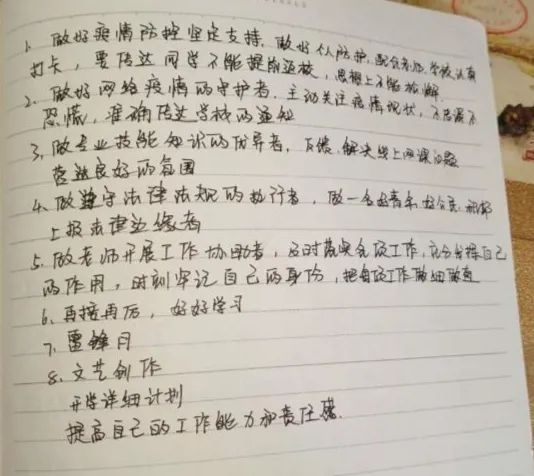 1. 做好疫情防控坚定支持.做好个人防护.配合老师,学校认真
打卡,要传达同学不能提前返校,思想上不能放松.
2. 做好网络疫情的守护者.主动关注疫情现状,不造谣不
恐慌,准确传达学校的通知
3, 做专业技能知识的优异者,反馈,解决线上网课问题
营造良好的氛围
4. 做遵守法律法规的执行者,做一名好青年,好公民.
上报法律边缘者
5. 做老师开展工作协助者,及时落实各项工作,充分发挥自己
的作用,时刻牢记自己的身份,把每项工作做细做实
6. 再接再厉,好好学习
7. 雷锋月
8. 文艺创作
开学详细计划
提高自己的工作能力和责任感.